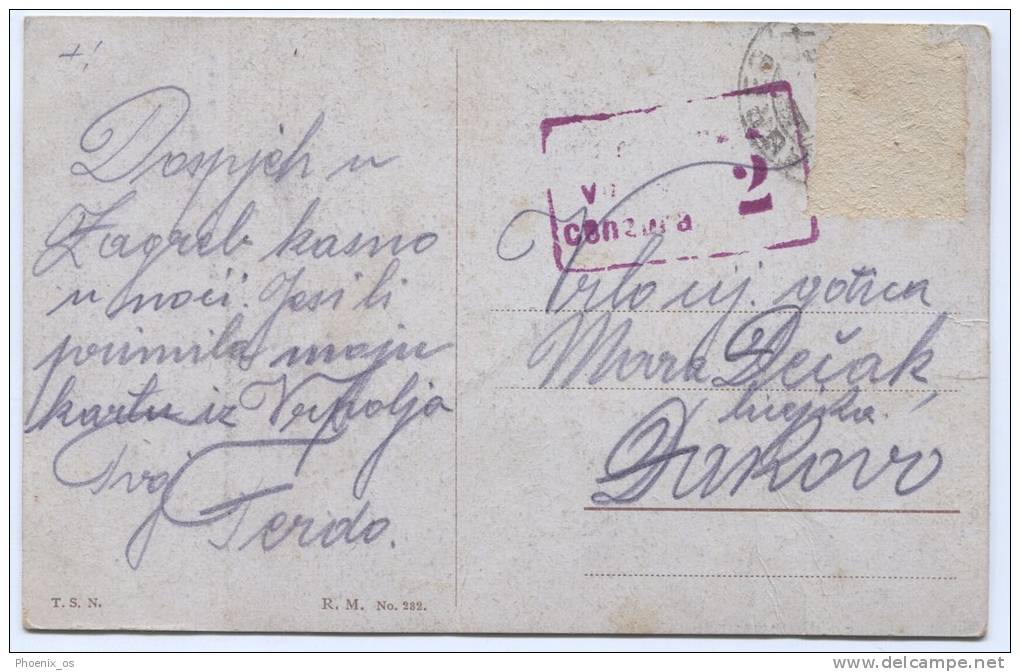 +!
Dospjeh u
Zagreb kasno
u noći. Jesi li
primila moju
kartu iz Vrpolja
Tvoj
Ferdo.
T. S. N.
R. M. No. 282.
cenzura
2
Vrlo cij. gđica
Mara Dečak,
Đakovo
Phoenix_os
www.delcampe.net